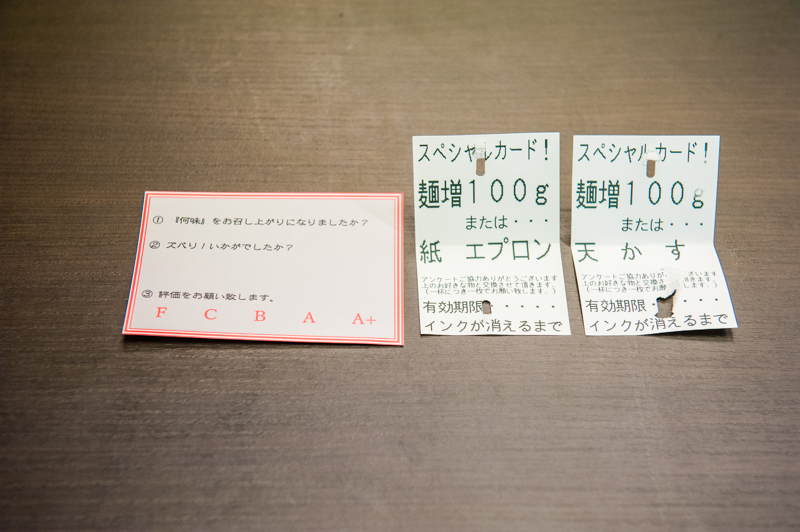 ① 『何味』をお召し上がりになりましたか？
② ズバリ！いかがでしたか？
③ 評価をお願い致します。
F C B A A+
スペシャルカード！
麺増１００ｇ
または・・・
紙 エプロン
アンケートご協力ありがとうございます
上のお好きな物と交換させて頂きます。
（一杯につき一枚でお願い致します。）
有効期限・・・・・・
インクが消えるまで
スペシャルカード！
麺増１００ｇ
または・・・
天 か す
アンケートご協力ありがとうございます
上のお好きな物と交換
（一杯につき一枚でお願 します。）
有効期限・・・・・
インクが消えるまで